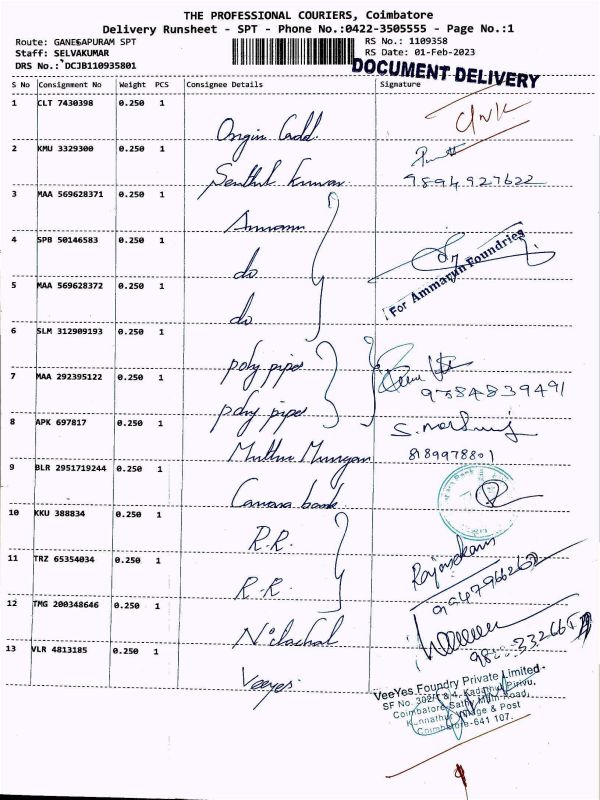 THE PROFESSIONAL COURIERS, Coimbatore
Delivery Runsheet - SPT - Phone No.:0422-3505555 - Page No.:1
Route: GANESAPURAM SPT
RS No.: 1109358
Staff: SELVAKUMAR
RS Date: 01-Feb-2023
DRS No.: DCJB110935801
DOCUMENT DELIVERY
S No Consignment No Weight PCS Consignee Details Signature
1 CLT 7430398 0.250 1
2 KMU 3329300 0.250 1 Senthil Kumar 9894927622
3 MAA 569628371 0.250 1
4 SPB 50146583 0.250 1 do
For Ammarun Foundries
5 MAA 569628372 0.250 1 do
6 SLM 312909193 0.250 1 poly pipes
7 MAA 292395122 0.250 1 poly pipes 9784839491
8 APK 697817 0.250 1 Muthu Murugan
8189978801
9 BLR 2951719244 0.250 1 Canara bank
10 KKU 388834 0.250 1 R.R.
11 TRZ 65354034 0.250 1 R.R. Rajasekaran
12 TMG 200348646 0.250 1 Nilachal
13 VLR 4813185 0.250 1 Veeyes
VeeYes Foundry Private Limited
SF No. 302/1 & 4,
Coimbatore Sathy Main Road,
Kunnathur Village & Post
Coimbatore-641 107.